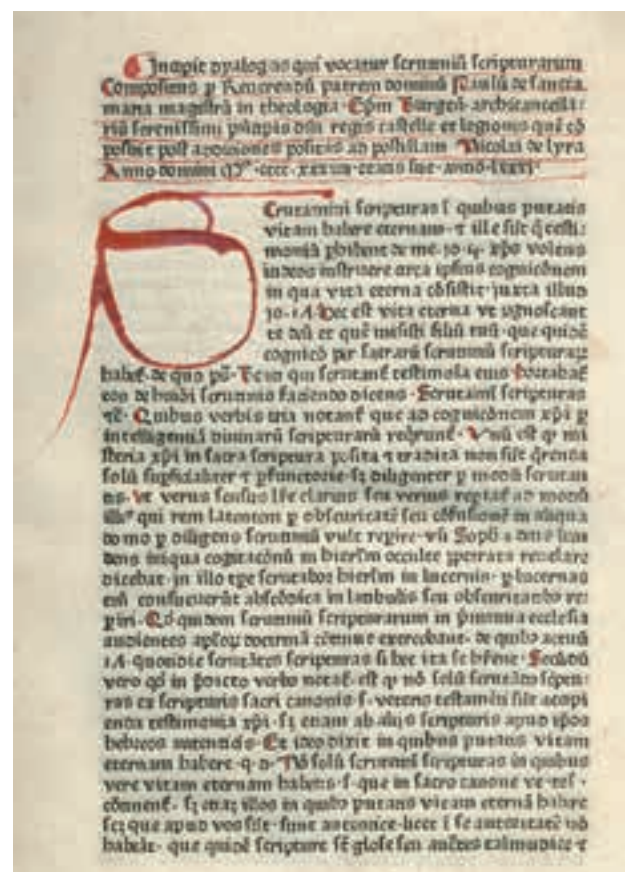 Incipit dyalogus qui vocatur scrutiniũ scripturarum
Compositus p Reuerendũ patrem dominũ Paulũ de sancta
maria magistrũ in theologia Ep̃m Burgeñ archicancella
riũ serenissimi prĩcipis dñi regis castelle et legionis quẽ cõ
posuit post addiciones positas ad postillam Nicolai de lyra
Anno domini Mº cccc xxxiiii etatis sue anno lxxxi
Scrutamini scripturas ĩ quibus putatis
vitam habere eternam ⁊ ille sũt q̃ testi
moniũ phibent de me Jo q xp̃s volens
iudeos instruere circa ipsius cognicõnem
in qua vita eterna cõsistit iuxta illud
Jo 1A Hec est vita eterna vt cognoscant
te deũ et quẽ misisti filiũ tuũ que quidẽ
cognicõ per sacrarũ scrutiniũ scripturaꝝ
habet de quo pũ Beati qui scrutant testimonia eius hortabat
eos debuidi scrutinio faciendo dicens Scrutami scripturas
⁊c̃ Quibus verbis tria notant que ad cognicõnem xp̃i p
intelligentiã diuinarũ scripturarũ reqrunt Vnũ est q mi
steria xp̃i in sacra scriptura posita ⁊ tradita non sũt q̃renda
solũ supficialiter ⁊ pfunctorie sꝫ diligenter p modũ scrutan
tis vt verus sensus lr̃e clarius seu verius
qui rem latentem p obscuritatẽ seu cõfusionẽ in aliqua
domo p diligens scrutiniũ vult repire
dicebat in illo tpe scrutabor hierl̃m in lucernis p lucernas
eñ consueuerũt abscõdita in latibulis seu obscuritatibus re
piri Qd̃ quidem scrutiniũ scripturarum in primitiua ecclesia
audientes doctrinã cõmuniter exercebant de quibus actuũ
1A quotidie scrutãtes scripturas si hec ita se Secũdũ
vero qd̃ in verbo notat est q nõ solũ
ras ex scripturis sacri canonis s veteris testamẽti sũt
enda testimonia xp̃i sꝫ etiam ab alijs scripturis apud ip̃os
hebreos autenticis Et ideo dixit in quibus putatis vitam
eternam habere q d Nõ solũ scrutami scripturas in quibus
vere vitam eternam habetis s que in sacro canone ve tes
cõtinent sꝫ etiaꝫ illas in quibus putatis vitam eternã habere
scꝫ que apud vos sũt autentice licet ĩ se autoritatẽ nõ
habeãt que quidẽ scripture sũt glose seu talmudice ⁊